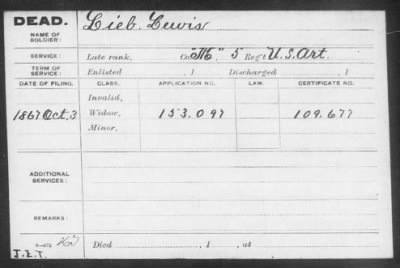 DEAD.
NAME OF SOLDIER:
Lieb Lewis
SERVICE:
Late rank, Co. "M", 5 Reg't U.S. Art.
TERM OF SERVICE:
Enlisted , 1 Discharged , 1
DATE OF FILING. CLASS. APPLICATION NO. LAW. CERTIFICATE NO.
Invalid,
1867 Oct. 3 Widow, 153.097 109.677
Minor,
ADDITIONAL SERVICES:
REMARKS:
Died , 1 , at
J.E.T.